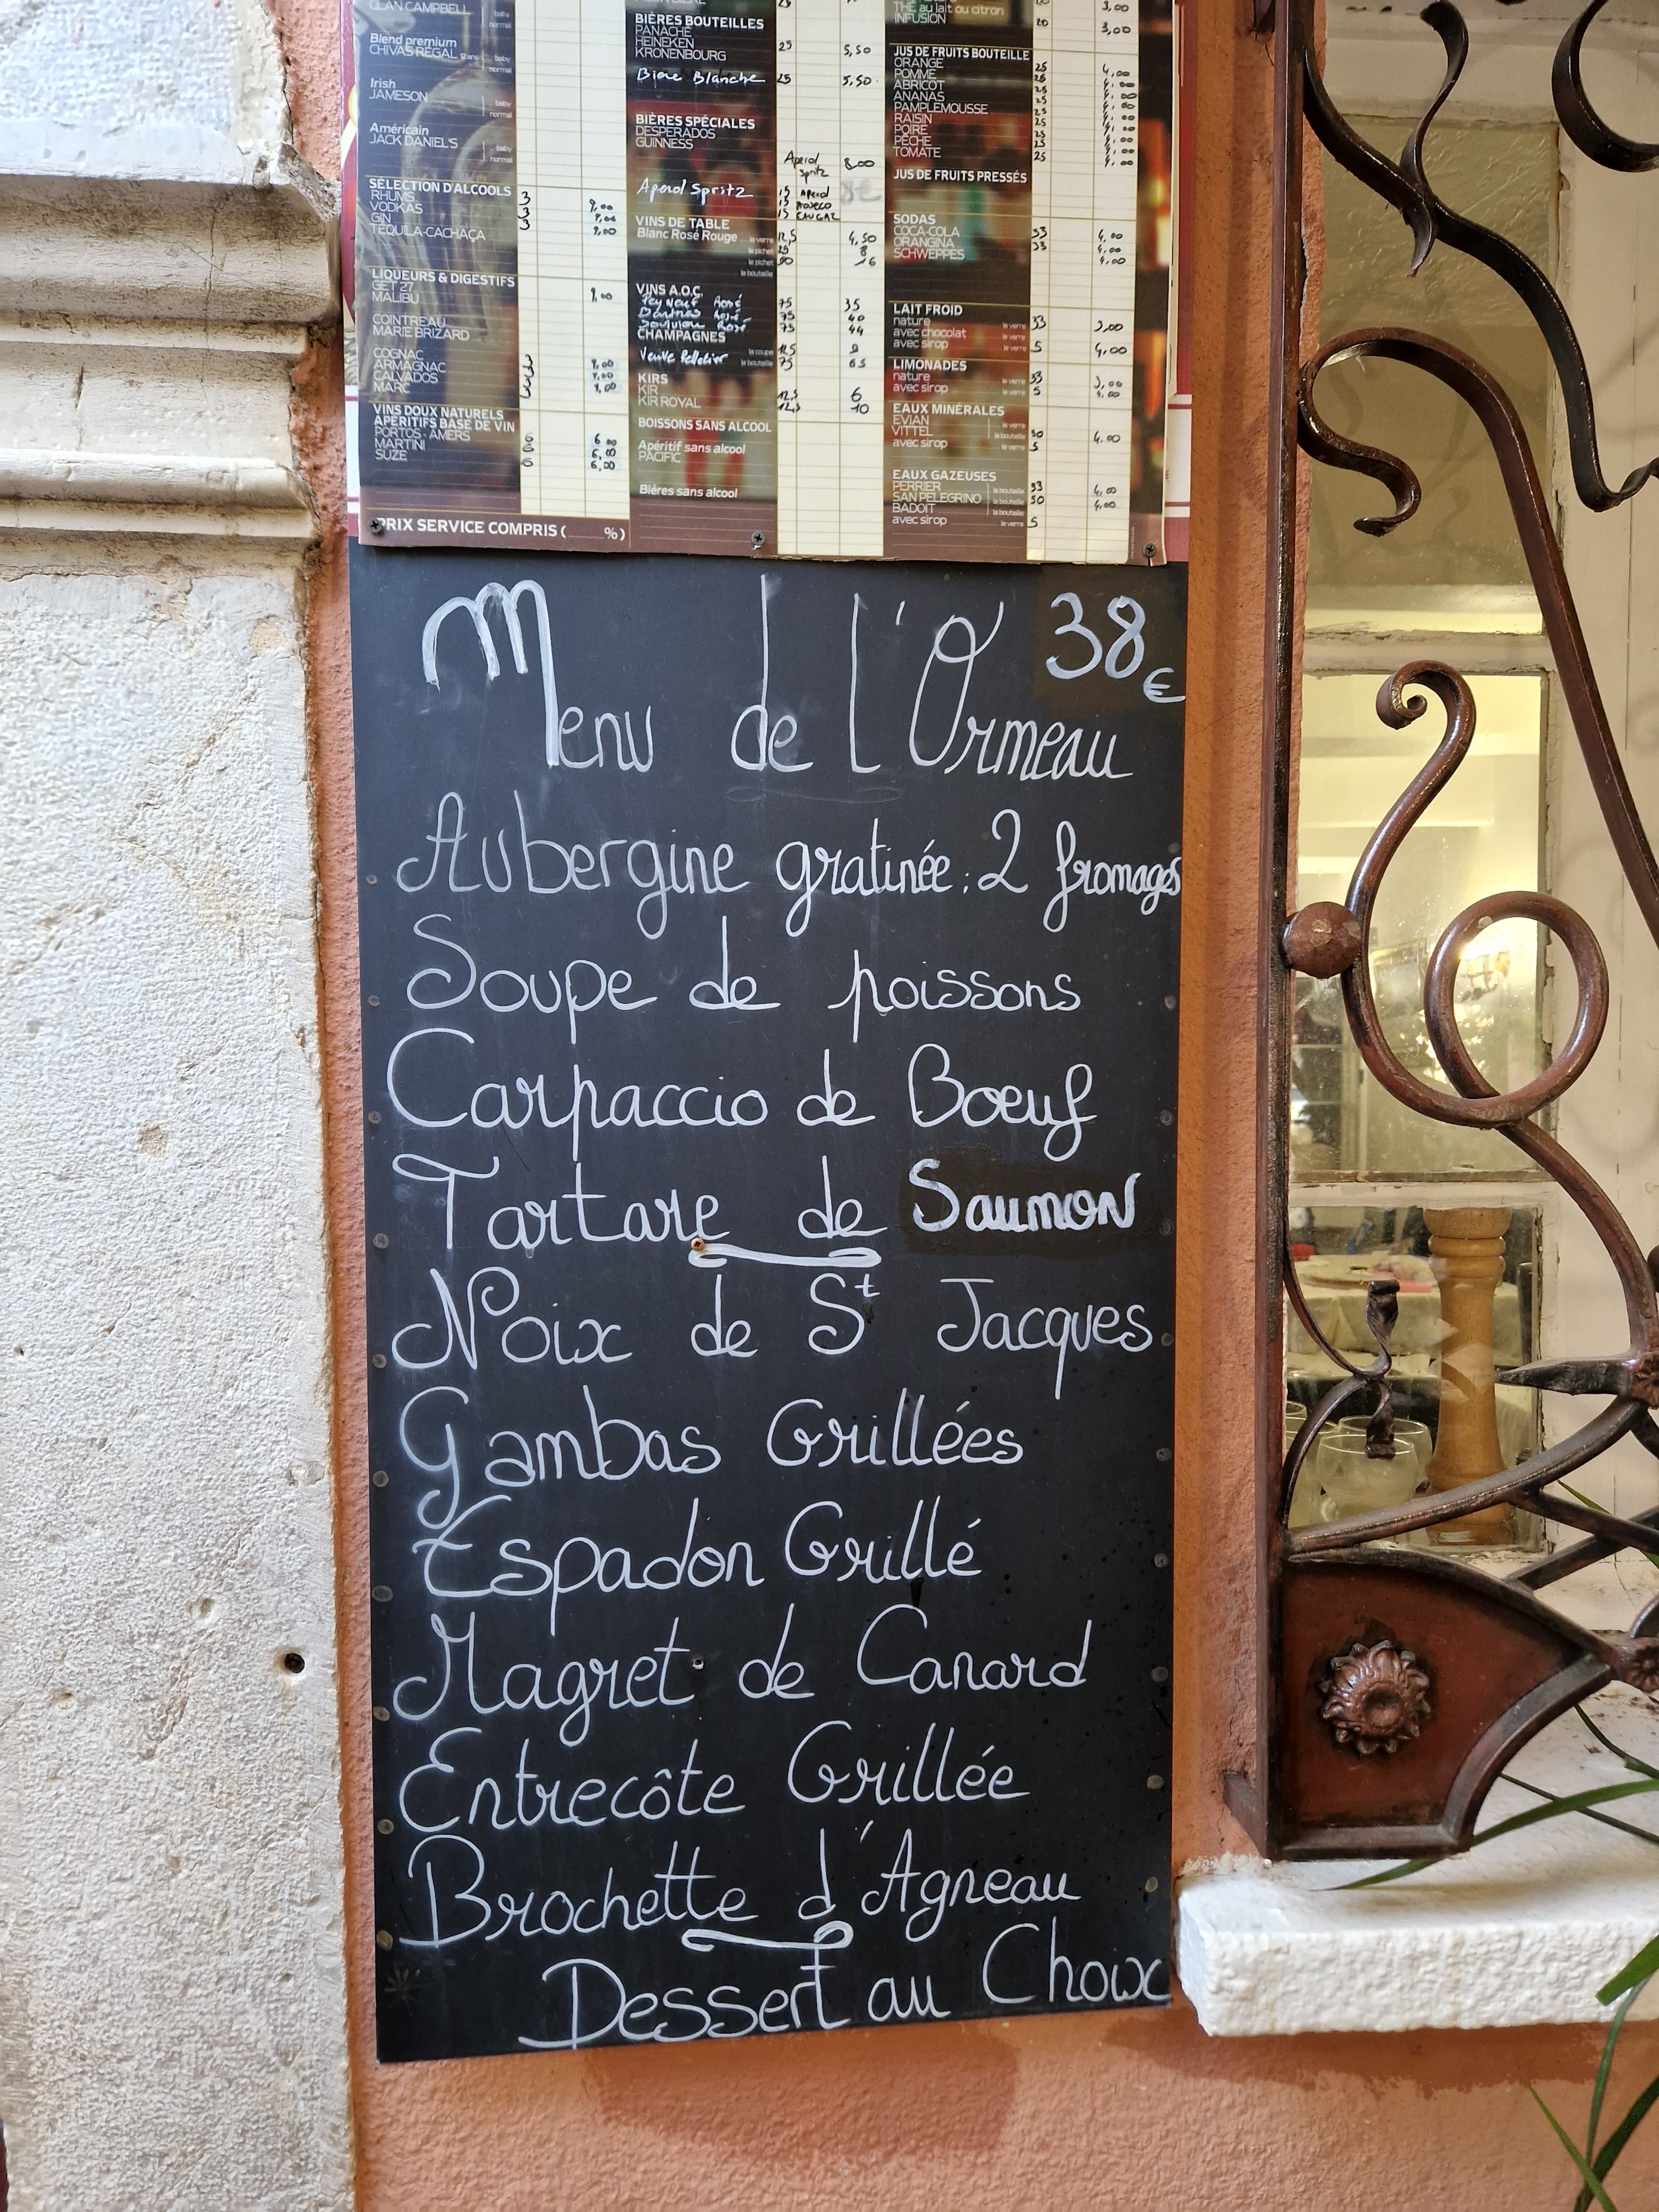 CLAN CAMPBELL baby
normal
Blend premium
CHIVAS REGAL 12 ans baby
normal
Irish
JAMESON baby
normal
Américain
JACK DANIEL'S baby
normal
SÉLECTION D'ALCOOLS
RHUMS 3 9,00
VODKAS 3 9,00
GIN 3 9,00
TEQUILA-CACHAÇA
LIQUEURS & DIGESTIFS
GET 27 9,00
MALIBU
COINTREAU
MARIE BRIZARD
COGNAC 9,00
ARMAGNAC 9,00
CALVADOS 9,00
MARC
VINS DOUX NATURELS
APÉRITIFS BASE DE VIN
PORTOS - AMERS 6 6,00
MARTINI 6 6,00
SUZE 6 6,00
PRIX SERVICE COMPRIS ( %)
BIÈRES BOUTEILLES
PANACHÉ
HEINEKEN 25 5,50
KRONENBOURG
Bière Blanche 25 5,50
BIÈRES SPÉCIALES
DESPERADOS
GUINNESS
Aperol Spritz 8,00
Aperol Spritz 15 Aperol 8€
15
15
VINS DE TABLE
Blanc Rosé Rouge le verre 12,5 4,50
le pichet 25 8
le pichet 50 16
la bouteille
VINS A.O.C.
Rosé 75 35
75 40
Rosé 75 44
CHAMPAGNES
Veuve Pelletier la coupe 12,5 9
la bouteille 75 65
KIRS
KIR 12,5 6
KIR ROYAL 12,5 10
BOISSONS SANS ALCOOL
Apéritif sans alcool
PACIFIC
Bières sans alcool
THÉ au lait ou citron 3,00
INFUSION 20 3,00
JUS DE FRUITS BOUTEILLE
ORANGE 25 4,00
POMME 25 4,00
ABRICOT 25 4,00
ANANAS 25 4,00
PAMPLEMOUSSE 25 4,00
RAISIN 25 4,00
POIRE 25 4,00
PÊCHE 25 4,00
TOMATE 25 4,00
JUS DE FRUITS PRESSÉS
SODAS
COCA-COLA 33 4,00
ORANGINA 33 4,00
SCHWEPPES 4,00
LAIT FROID
nature le verre 33 3,00
avec chocolat le verre
avec sirop le verre 5 4,00
LIMONADES
nature le verre 33 3,00
avec sirop le verre 5 4,00
EAUX MINÉRALES
EVIAN le verre
VITTEL la bouteille 50 4,00
avec sirop le verre 5
EAUX GAZEUSES
PERRIER la bouteille 33 4,00
SAN PELEGRINO la bouteille 50 4,00
BADOIT la bouteille
avec sirop le verre 5
Menu de l'Ormeau 38€
Aubergine gratinée : 2 fromages
Soupe de poissons
Carpaccio de Boeuf
Tartare de Saumon
Noix de St Jacques
Gambas Grillées
Espadon Grillé
Magret de Canard
Entrecôte Grillée
Brochette d'Agneau
Dessert au Choix